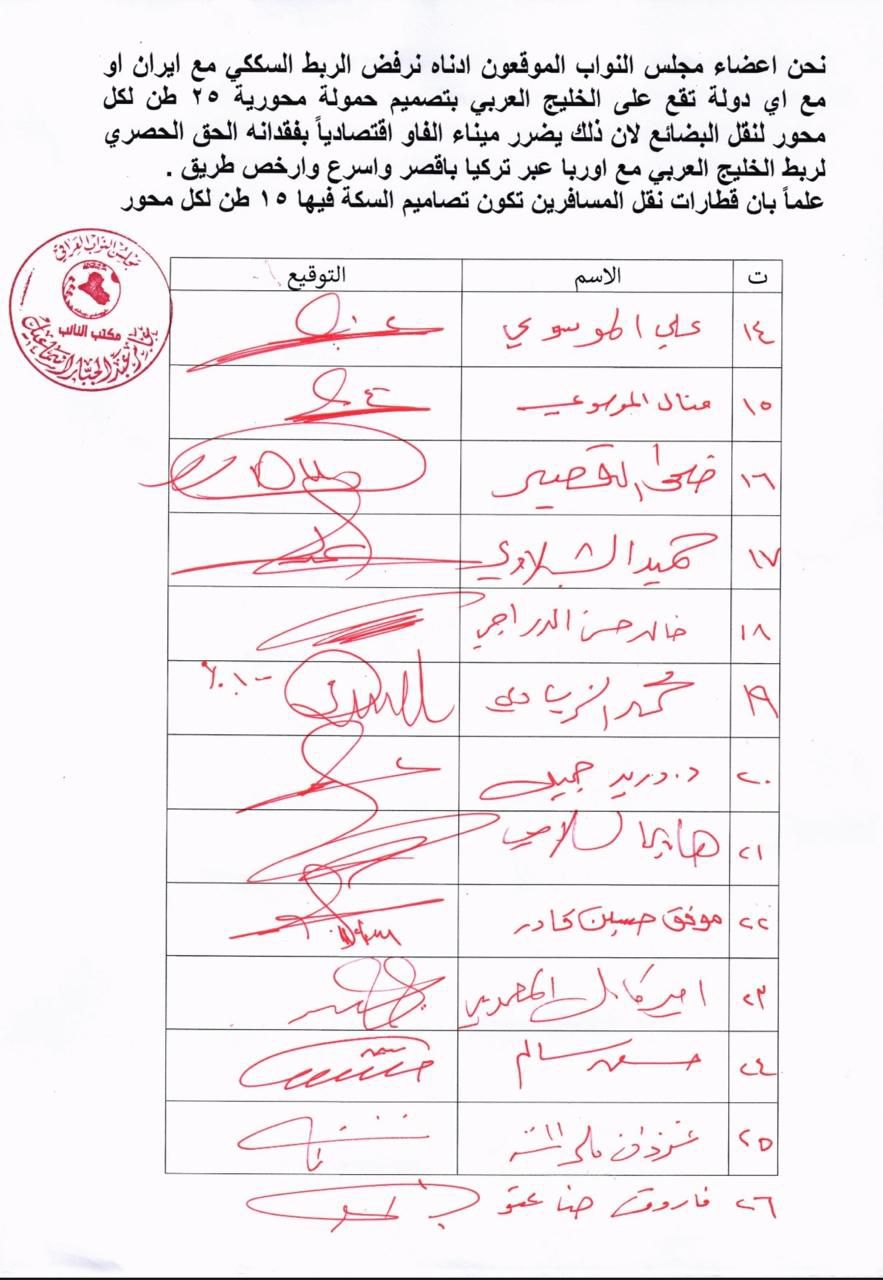 نحن اعضاء مجلس النواب الموقعون ادناه نرفض الربط السككي مع ايران او
مع اي دولة تقع على الخليج العربي بتصميم حمولة محورية ٢٥ طن لكل
محور لنقل البضائع لان ذلك يضرر ميناء الفاو اقتصادياً بفقدانه الحق الحصري
لربط الخليج العربي مع اوربا عبر تركيا باقصر واسرع وارخص طريق .
علماً بان قطارات نقل المسافرين تكون تصاميم السكة فيها ١٥ طن لكل محور
مجلس النواب العراقي
مكتب النائب
عبد الجبار
ت الاسم التوقيع
١٤ علي الموسوي
١٥ منال الموسوي
١٦ ضحى القصير
١٧ حميد الشبلاوي
١٨ خالد حسن الدراجي
١٩ محمد الزيادي
٢٠ د. دريد جميل
٢١
٢٢ موفق حسين
٢٣ امير كامل
٢٤ سالم
٢٥
٢٦ فاروق حنا عتو